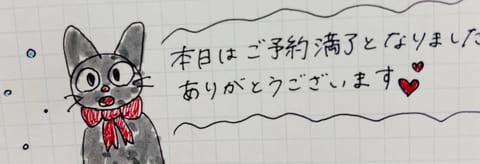 本日はご予約満了となりました
ありがとうございます